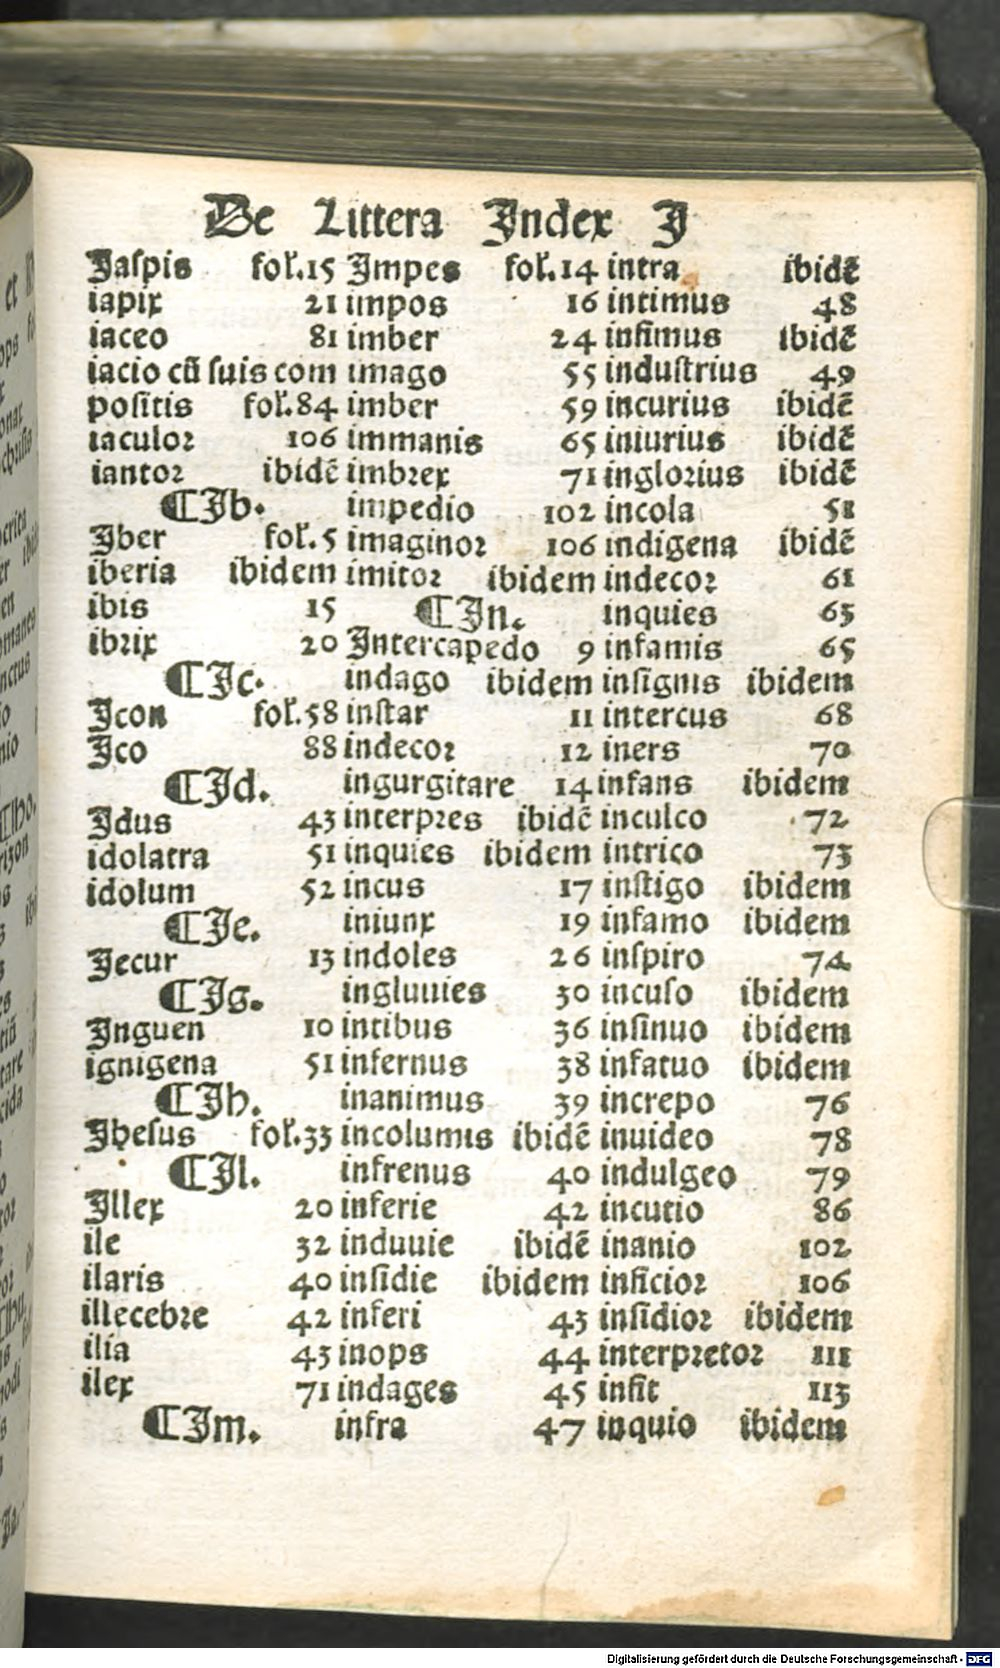 De Littera Index I
Jaspis fol.15
iapix 21
iaceo 81
iacio cū suis com
positis fol.84
iaculor 106
iantor ibidē
¶Ib.
Iber fol.5
iberia ibidem
ibis 15
ibrix 20
¶Ic.
Icon fol.58
Ico 88
¶Id.
Idus 43
idolatra 51
idolum 52
¶Ie.
Jecur 13
¶Ig.
Inguen 10
ignigena 51
¶Ih.
Ihesus fol.33
¶Il.
Illex 20
ile 32
ilaris 40
illecebre 42
ilia 43
ilex 71
¶Im.
Impes fol.14
impos 16
imber 24
imago 55
imber 59
immanis 65
imbrex 71
impedio 102
imaginor 106
imitor ibidem
¶In.
Intercapedo 9
indago ibidem
instar 11
indecor 12
ingurgitare 14
interpres ibidē
inquies ibidem
incus 17
iniunx 19
indoles 26
ingluuies 30
intibus 36
infernus 38
inanimus 39
incolumis ibidē
infrenus 40
inferie 42
induuie ibidē
insidie ibidem
inferi 43
inops 44
indages 45
infra 47
intra ibidē
intimus 48
infimus ibidē
industrius 49
incurius ibidē
iniurius ibidē
inglorius ibidē
incola 51
indigena ibidē
indecor 61
inquies 63
infamis 65
insignis ibidem
intercus 68
iners 70
infans ibidem
inculco 72
intrico 73
instigo ibidem
infamo ibidem
inspiro 74
incuso ibidem
insinuo ibidem
infatuo ibidem
increpo 76
inuideo 78
indulgeo 79
incutio 86
inanio 102
inficior 106
insidior ibidem
interpretor 111
infit 113
inquio ibidem
Digitalisierung gefördert durch die Deutsche Forschungsgemeinschaft - DFG